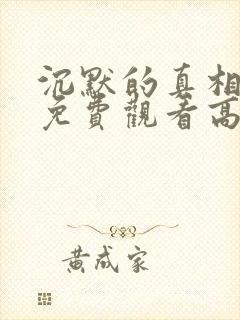 沉默的真相
免費觀看高
黃成家